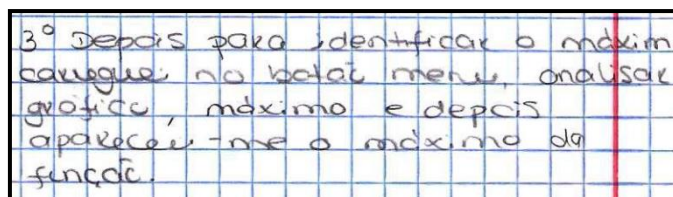 3º Depois para identificar o máxim
carreguei no botão menu, analisar
gráfico, máximo e depois
apareceu-me o máximo da
função.